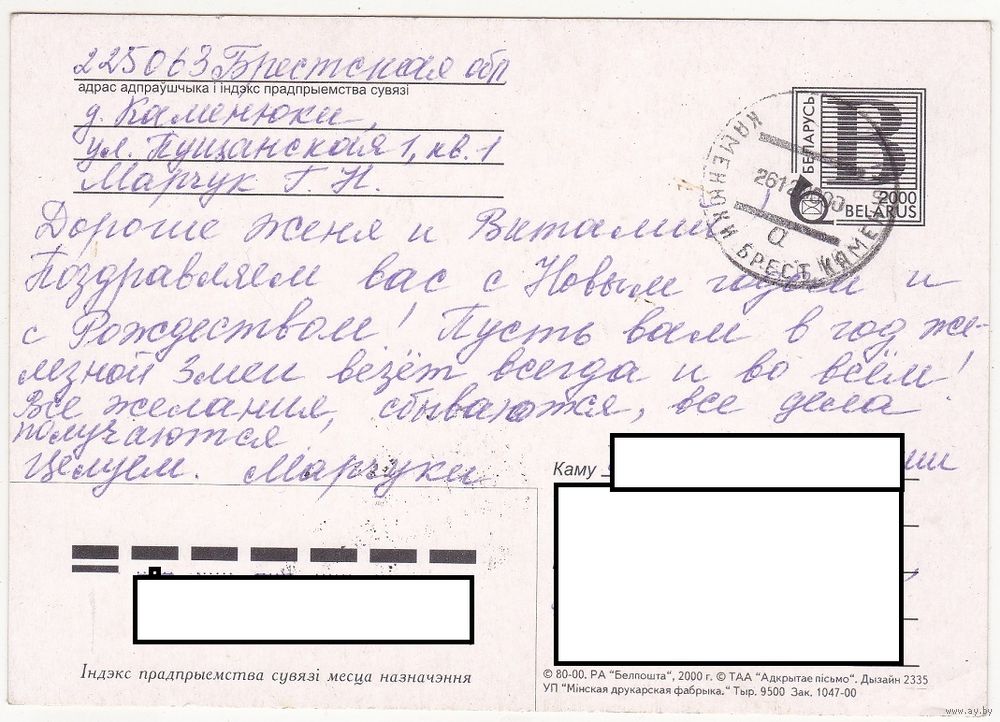 225063 Брестская обл
адрас адпраўшчыка і індэкс прадпрыемства сувязі
д. Каменюки,
ул. Пущанская 1, кв. 1
Марчук Г. Н.
БЕЛАРУСЬ
B
2000
BELARUS
КАМЕНЮКИ БРЕСТ
а
Дорогие Женя и Виталий!
Поздравляем вас с Новым годом и
с Рождеством! Пусть вам в год же-
лезной Змеи везёт всегда и во всём!
Все желания, сбываются, все дела
получаются
Целуем. Марчуки
Каму
Індэкс прадпрыемства сувязі месца назначэння
© 80-00. РА "Белпошта", 2000 г. © ТАА "Адкрытае пісьмо". Дызайн 2335
УП "Мінская друкарская фабрыка." Тыр. 9500 Зак. 1047-00
www.ay.by